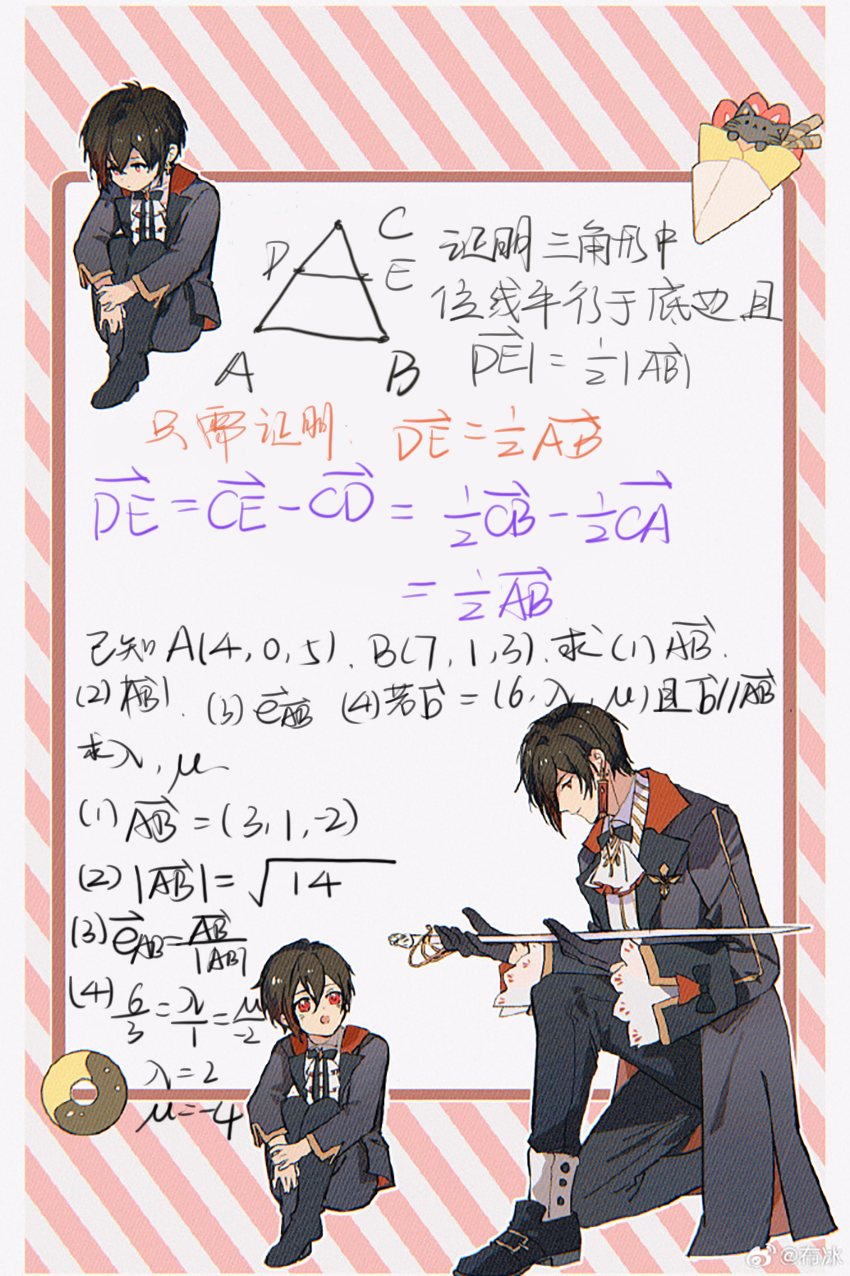 C
D
E
A
B
证明三角形中
位线平行于底边且
|DE|⃗ = ½|AB⃗|
只需证明: DE⃗ = ½AB⃗
DE⃗ = CE⃗ - CD⃗ = ½CB⃗ - ½CA⃗
= ½AB⃗
已知A(4,0,5).B(7,1,3).求(1)AB⃗.
(2)|AB⃗|.(3)e⃗AB (4)若b⃗ = (6,λ,μ)且b⃗//AB⃗
求λ,μ
(1) AB⃗ = (3,1,-2)
(2) |AB⃗| = √14
(3) e⃗AB = AB⃗/|AB⃗|
(4) 6/3 = λ/1 = μ/-2
λ=2
μ=-4
@布冰